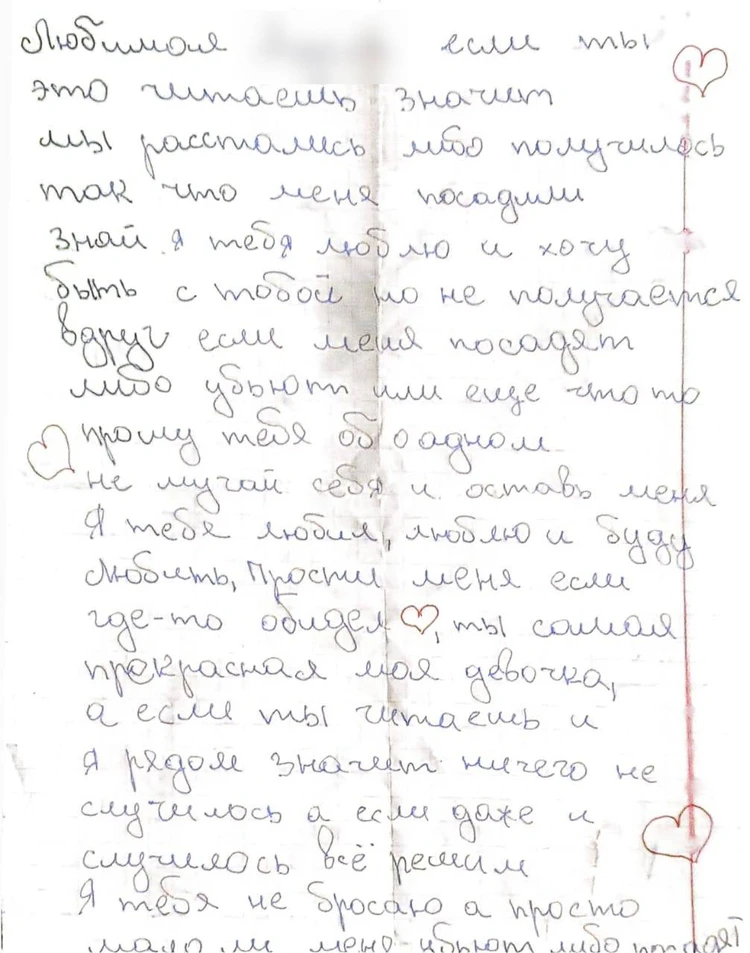 Любимая если ты
это читаешь значит
мы расстались либо получилось
так что меня посадили
знай я тебя люблю и хочу
быть с тобой но не получается
вдруг если меня посадят
либо убьют или еще что то
прошу тебя об одном
не мучай себя и оставь меня
Я тебя любил, люблю и буду
любить, Прости меня если
где-то обидел, ты самая
прекрасная моя девочка,
а если ты читаешь и
я рядом значит ничего не
случилось а если даже и
случилось всё решим
Я тебя не бросаю а просто
мало ли меня убьют либо посадят